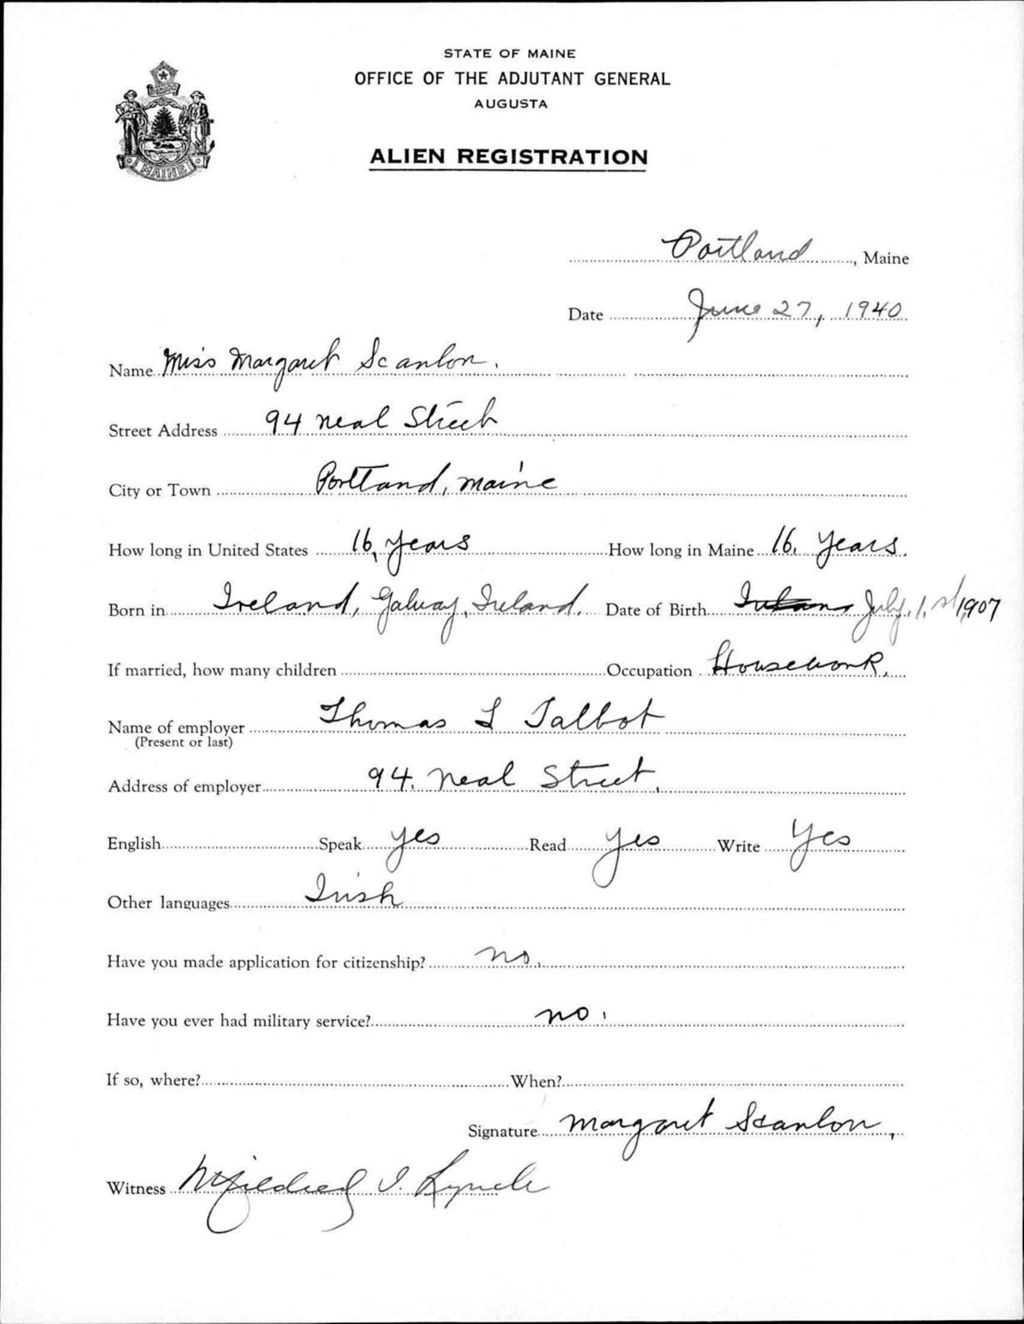 STATE OF MAINE
OFFICE OF THE ADJUTANT GENERAL
AUGUSTA
MAINE
ALIEN REGISTRATION
Portland, Maine
Date June 27, 1940
Name Miss Margaret Scanlon.
Street Address 94 Neal Street
City or Town Portland, Maine
How long in United States 16, years How long in Maine 16, years.
Born in Ireland, Galway, Ireland. Date of Birth July, 1. st, 1907
If married, how many children Occupation Housework,
Name of employer Thomas L Talbot
(Present or last)
Address of employer 94, Neal Street,
English Speak yes Read yes Write Yes
Other languages Irish
Have you made application for citizenship? no,
Have you ever had military service? no,
If so, where? When?
Signature Margaret Scanlon,
Witness Mildred I. Lynch